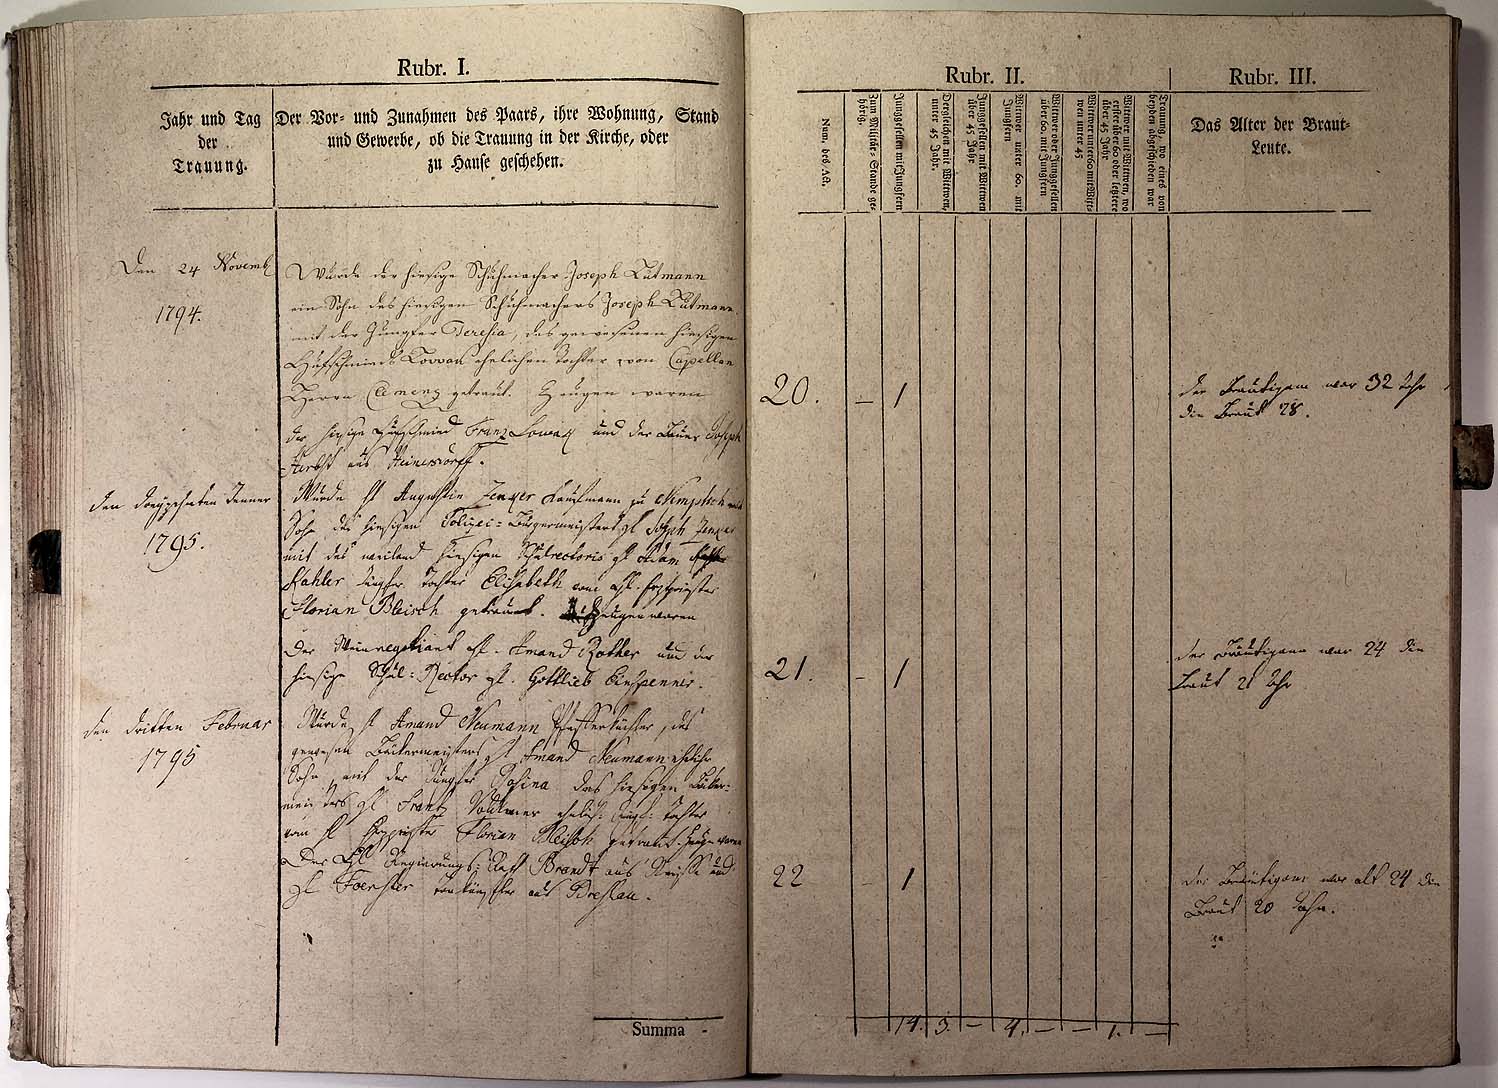 Rubr. I.
Jahr und Tag
der
Trauung.
Der Vor- und Zunahmen des Paars, ihre Wohnung, Stand
und Gewerbe, ob die Trauung in der Kirche, oder
zu Hause geschehen.
Den 24 Novemb
1794.
Wurde der hiesige Schuhmacher Joseph Lutmann
ein Sohn des hiesigen Schuhmachers Joseph Lutmann
mit der Jungfer Teresia, des gewesenen hiesigen
Hufschmieds ehelichen Tochter von Capellan
Herrn getraut. Zeugen waren
der hiesige Hufschmied Franz und der Bauer Joseph
Herbst aus Heinersdorff.
den dreyzehnten Jenner
1795.
Wurde H Augustin Jenzer Kaufmann zu Nimptsch
Sohn des hiesigen Polizei-Bürgermeisters H Joseph Jenzer
mit des weiland hiesigen Schulrectoris H Adam
Kahler Jungfr. Tochter Elisabeth vom H. Erzpriester
Florian Bleisch getraut. Zeugen waren
Der Weinnegotiant H. Amand Rother und der
hiesige Schul-Rector H. Gottlieb
den dritten Februar
1795
Wurde H Amand Neumann Pfefferküchler, des
gewesen Bäckermeisters H Amand Neumann ehelicher
Sohn, mit der Jungfer Rosina des hiesigen Bäcker-
meisters H Frantz Volkmer ehelich: Jungf: Tochter
vom H Erzpriester Florian Bleisch getraut. Zeugen waren
Der H Regierungs-Rath Brandt aus Neisse und
H Foerster aus Breslau.
Summa -
Rubr. II.
Num. des Act.
Zum Militär-Stande gehörig.
Junggesellen mit Jungfern
Dergleichen mit Wittwen, unter 45 Jahr.
Junggesellen mit Wittwen über 45 Jahr
Wittwer unter 60. mit Jungfern
Wittwer oder Junggesellen über 60, mit Jungfern
Wittwer unter 60 mit Wittwen unter 45
Wittwer mit Wittwen, wo erster über 60 oder letztere über 45 Jahr
Trauung, wo eines von beyden abgeschieden war
20. – 1
21. – 1
22 – 1
14. 3. – 4. – – 1. –
Rubr. III.
Das Alter der Braut-
Leute.
der Bräutigam war 32 Jahr
die Braut 28.
der Bräutigam war 24 die
Braut 21 Jahr
der Bräutigam war alt 24 die
Braut 20 Jahr.